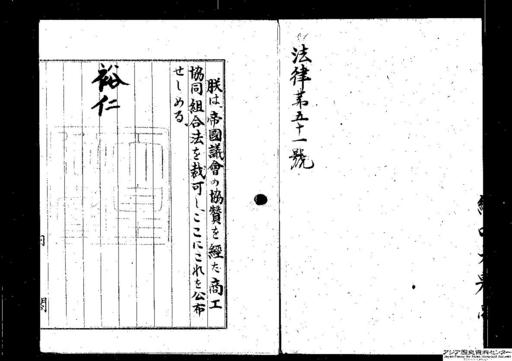 法律第五十一號
朕は、帝國議會の協賛を經た商工
協同組合法を裁可し、ここにこれを公布
せしめる。
裕仁
内 閣
アジア歴史資料センター